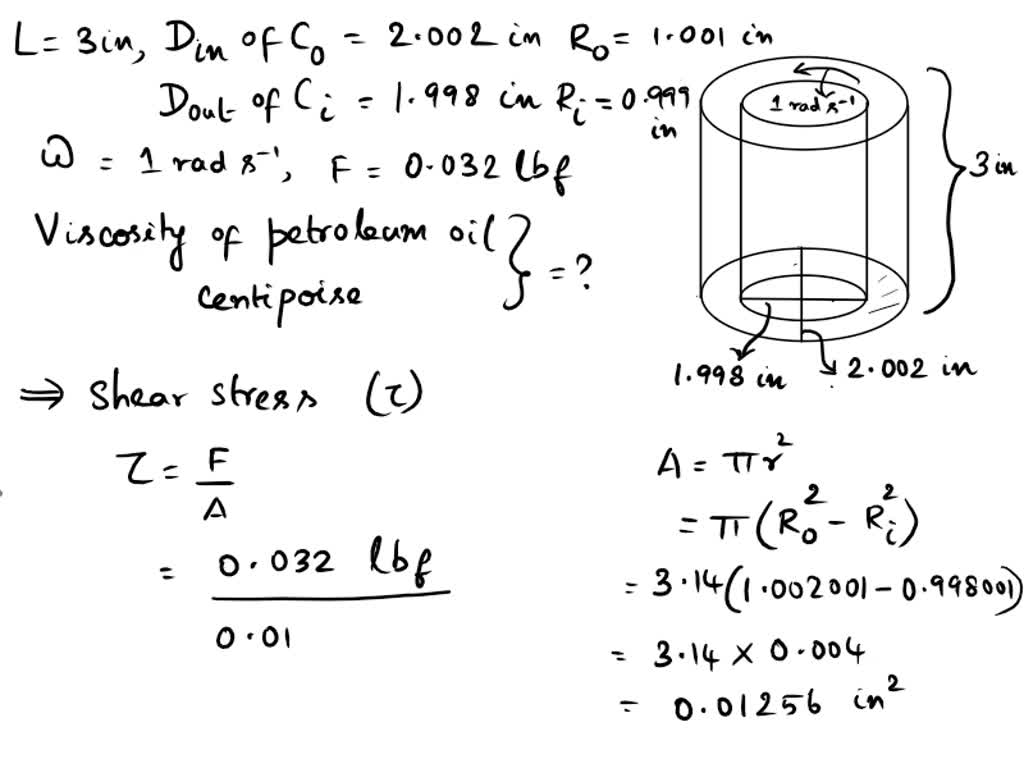 L = 3in, Din of Co = 2.002 in Ro = 1.001 in
Dout of Ci = 1.998 in Ri = 0.999 in
ω = 1 rad s⁻¹, F = 0.032 lbf
Viscosity of petroleum oil } = ?
centipoise
1 rad s⁻¹
3 in
1.998 in
2.002 in
⇒ Shear stress (τ)
τ = F/A
= 0.032 lbf
0.01
A = πr²
= π(Ro² - Ri²)
= 3.14(1.002001 - 0.998001)
= 3.14 × 0.004
= 0.01256 in²